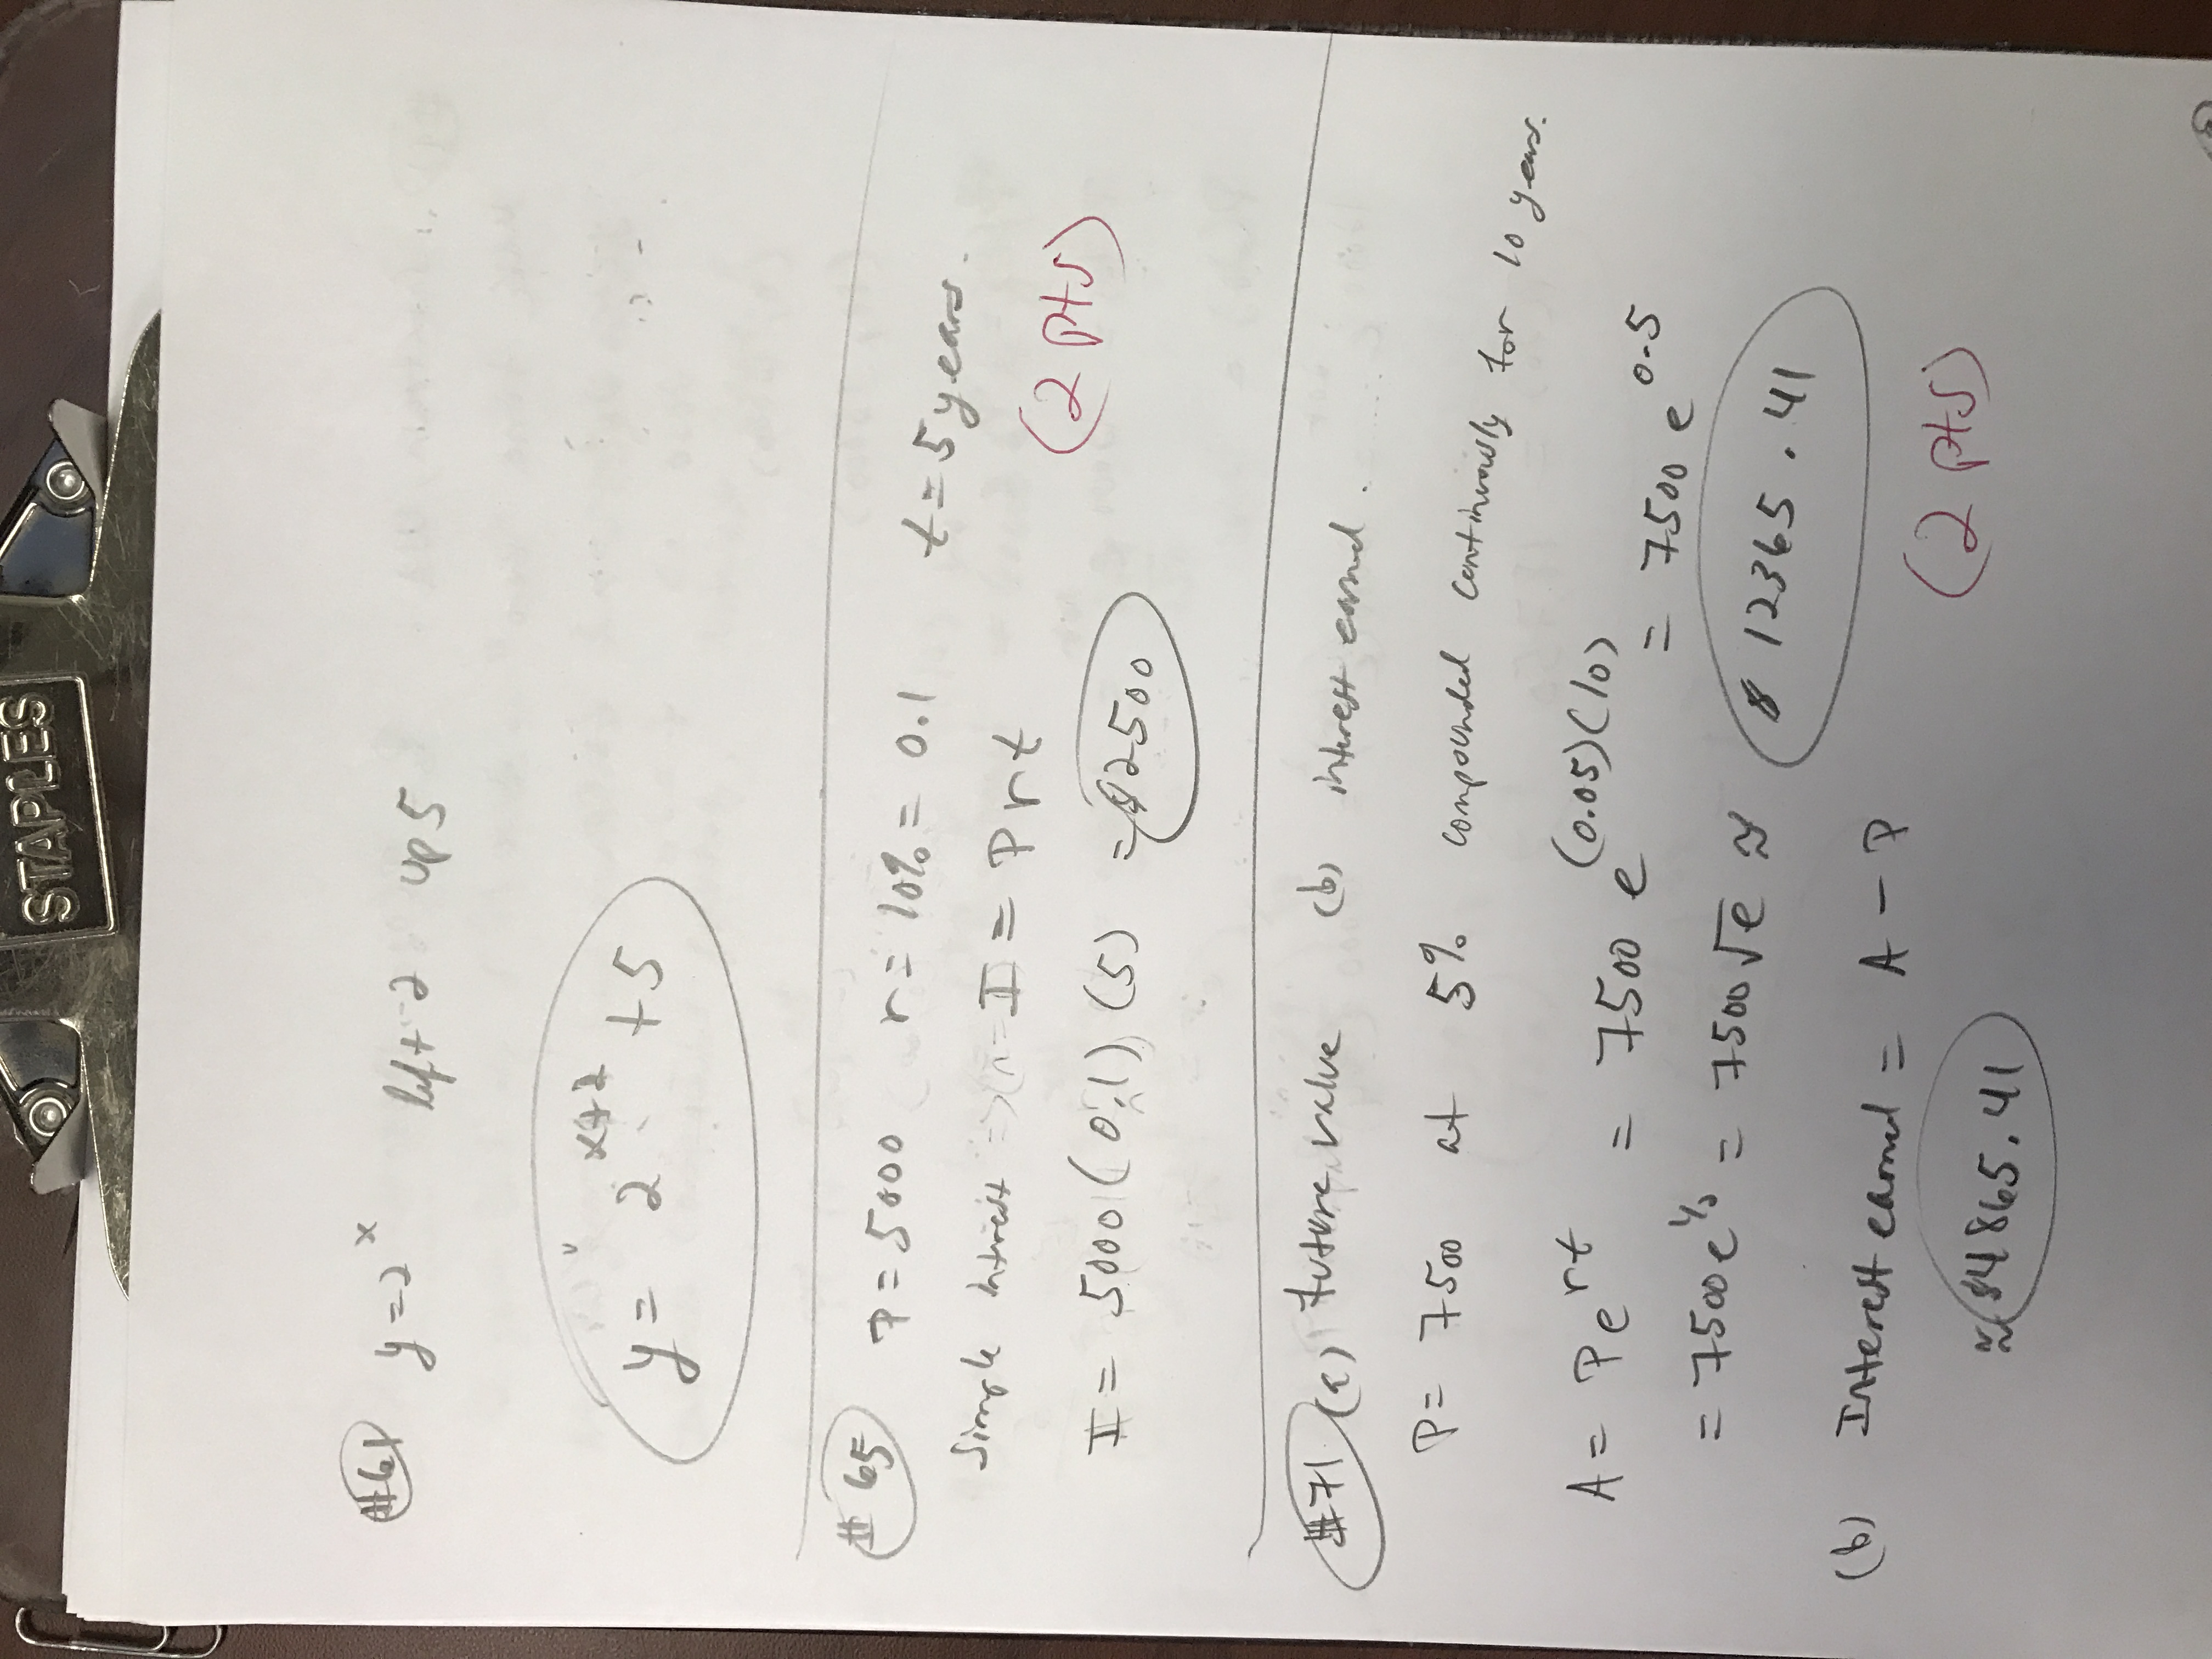 STAPLES
#61 y=2^x left 2 up 5
y = 2^{x+2} + 5
# 65 P = 5000 r = 10% = 0.1 t = 5 years.
Simple interest => I = Prt
(2 pts)
I = 5000 (0.1) (5) = $2500
#71 (a) Future value (b) interest earned.
P = 7500 at 5% compounded continuously for 10 years.
A = Pe^{rt} = 7500 e^{(0.05)(10)} = 7500 e^{0.5}
= 7500 e^{1/2} = 7500 √e ≈ $ 12365.41
(b) Interest earned = A - P
(2 pts)
≈ $4865.41